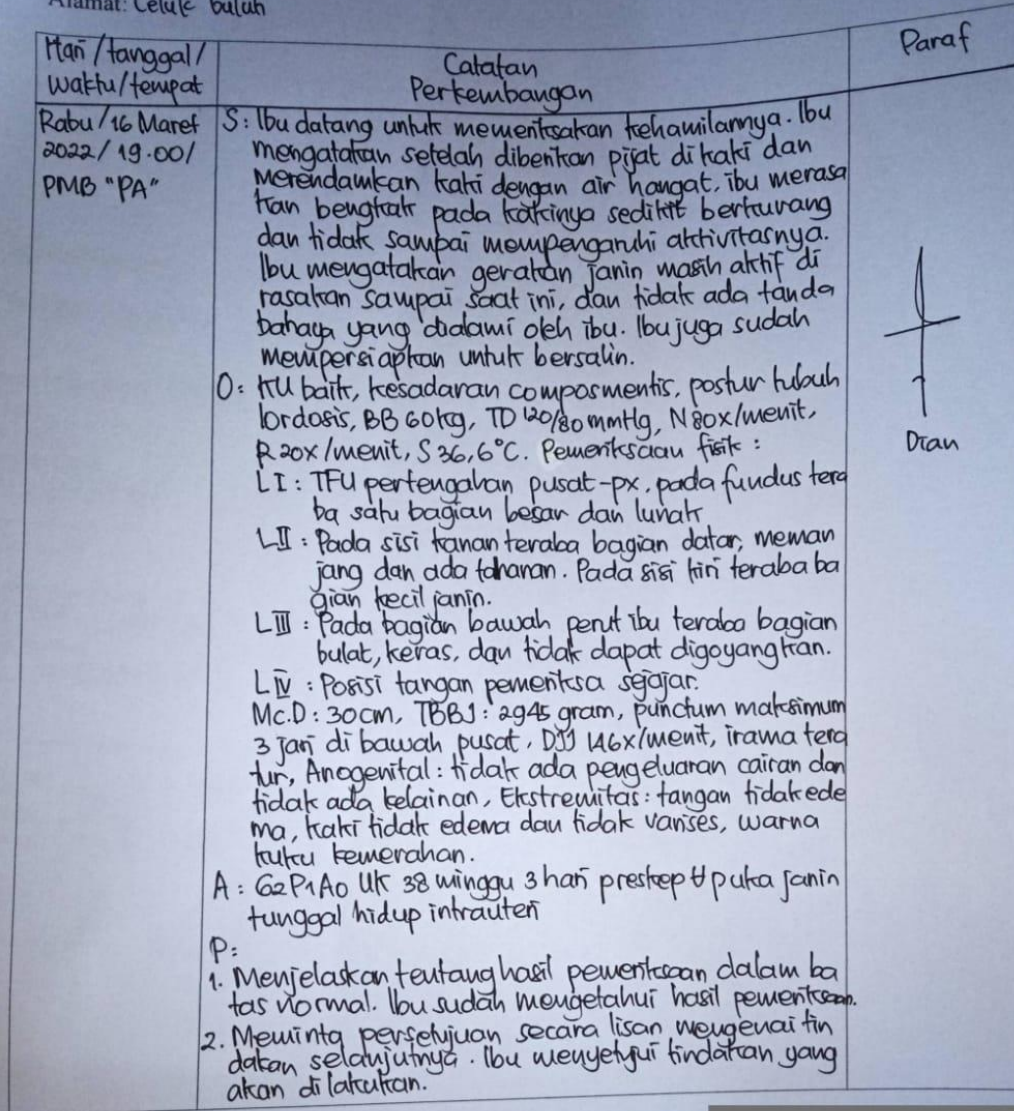 Alamat: Celuk buluh
Hari/tanggal/
waktu/tempat
Catatan
Perkembangan
Paraf
Rabu/16 Maret
2022/19.00/
PMB "PA"
S: Ibu datang untuk memeriksakan kehamilannya. Ibu
mengatakan setelah diberikan pijat di kaki dan
merendamkan kaki dengan air hangat, ibu merasa
kan bengkak pada kakinya sedikit berkurang
dan tidak sampai mempengaruhi aktivitasnya.
Ibu mengatakan gerakan janin masih aktif di
rasakan sampai saat ini, dan tidak ada tanda
bahaya yang dialami oleh ibu. Ibu juga sudah
mempersiapkan untuk bersalin.
O: KU baik, kesadaran composmentis, postur tubuh
lordosis, BB 60kg, TD 120/80 mmHg, N 80x/menit,
R 20x/menit, S 36,6°C. Pemeriksaan fisik :
LI : TFU pertengahan pusat-px, pada fundus tera
ba satu bagian besar dan lunak
LII : Pada sisi kanan teraba bagian datar, meman
jang dan ada tahanan. Pada sisi kiri teraba ba
gian kecil janin.
LIII : Pada bagian bawah perut ibu teraba bagian
bulat, keras, dan tidak dapat digoyangkan.
LIV : Posisi tangan pemeriksa sejajar.
Mc.D : 30cm, TBBJ : 2945 gram, punctum maksimum
3 jari di bawah pusat, DJJ 146x/menit, irama tera
tur, Anogenital : tidak ada pengeluaran cairan dan
tidak ada kelainan, Ekstremitas : tangan tidak ede
ma, kaki tidak edema dan tidak varises, warna
kuku kemerahan.
A : G2P1A0 UK 38 minggu 3 hari preskep U puka janin
tunggal hidup intrauteri
P:
1. Menjelaskan tentang hasil pemeriksaan dalam ba
tas normal. Ibu sudah mengetahui hasil pemeriksaan.
2. Meminta persetujuan secara lisan mengenai tin
dakan selanjutnya. Ibu menyetujui tindakan yang
akan dilakukan.
Dian